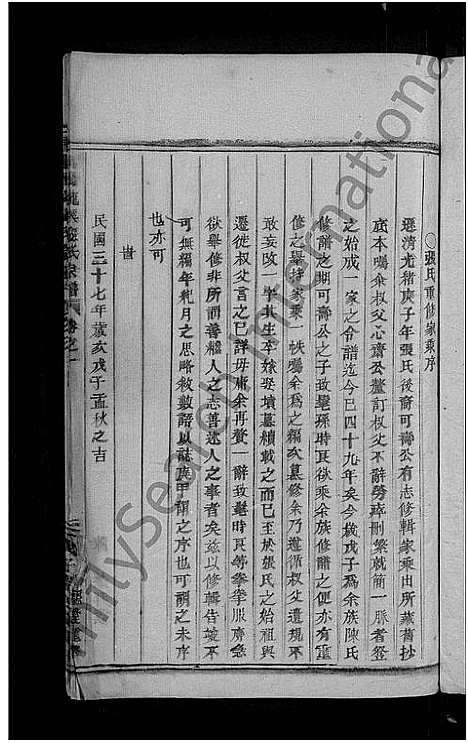 張氏重修家乘序
遜清光緒庚子年張氏後裔可濤公有志修輯家乘出所藏舊抄
底本囑余叔父心齋公釐訂叔父不辭勞瘁刪繁就簡一脈者登
之始成一家之令譜迄今已四十九年矣今歲戊子爲余族陳氏
修譜之期可濤公之子致鼍孫時艮欲乘余族修譜之便亦有重
修之舉持家乘一帙囑余爲之編次纂修余乃遵循叔父遺規不
敢妄改一字其生卒嫁娶墳墓續載之而已至於張氏之始祖與
遷徙叔父言之已詳毋庸余再贅一辭致鼍時艮等拳拳服膺急
欲舉修非所謂善繼人之志善述人之事者矣茲以修輯告竣不
可無編年紀月之思略敘數語以誌庚甲謂之序也可謂之未序
也亦可
旹
民國三十七年歲次戊子孟秋之吉
張氏宗譜 卷之一
FamilySearch International